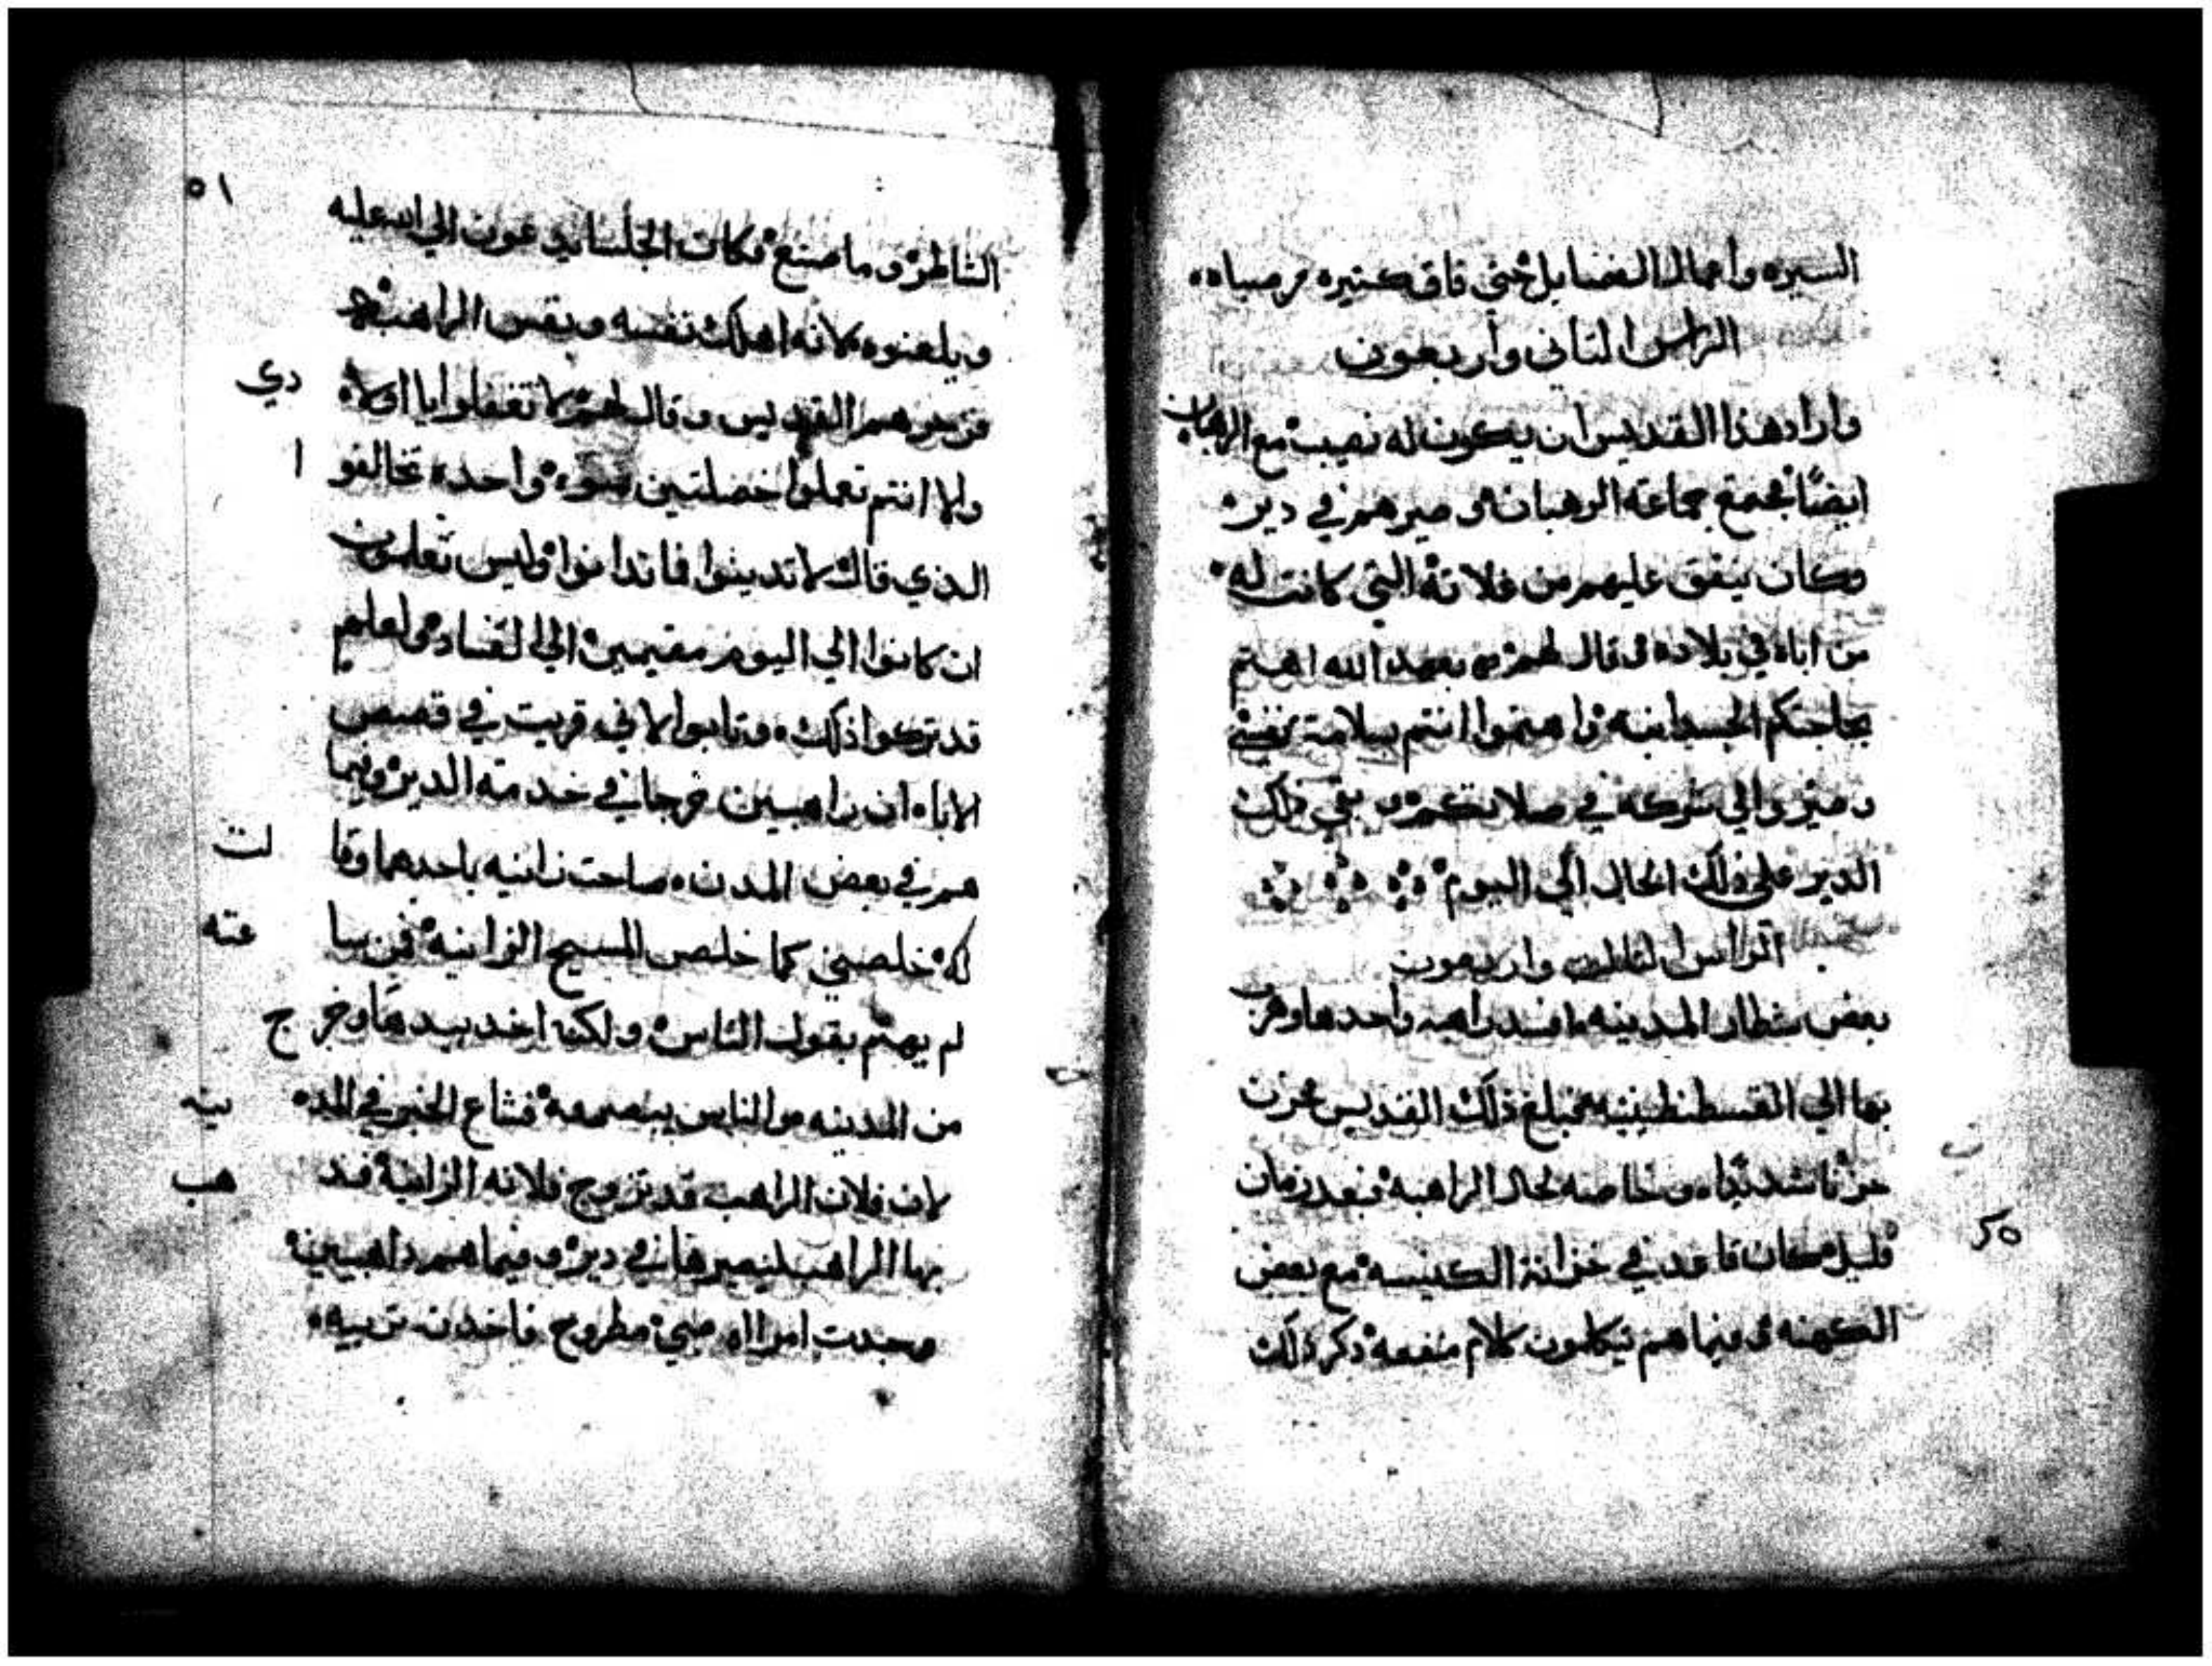 السيره واعمال الفضايل حتي فاق كتيره من صباه
الراس التاني واربعون
وارادهذا القديس ان يكون له نصيب مع الرهبان
ايضًا فجمع جماعة الرهبان و صيرهم في دير
وكان ينفق عليهم من فلاته التي كانت له
من اباه في بلاده و قال لهم بعد الله اهتم
بحاجتكم الجسدانيه واهتموا انتم بسلامة نفسي
وصيروالي شركه في صلاتكم و بقي ذلك
الدير علي ذلك الحال الي اليوم
الراس التالت واربعون
بعض شطار المدينه افسد راهبه واخدها وهرب
بها الي القسطنطينيه فبلغ ذلك القديس فحزن
حزنا شديدا و خاصه لحال الراهبه فبعد زمان
قليل كان قاعد في خزانة الكنيسه مع بعض
الكهنه و فيما هم يتكلمون كلام منفعه ذكر ذلك
٥١
الشاطر و ما صنع فكان الجلسا يدعون الي الله عليه
ويلعنوه لانه اهلك نفسه و نفس الراهبه
فزجرهم القديس وقال لهم لا تغفلوا يا اولادي
والا انتم تعملوا خصلتين سوء واحده تخالفوا
الذي قال لا تدينوا فما تدانوا وليس تعلمون
ان كانوا الي اليوم مقيمين الي الفساد ولعلهم
قد تركوا ذلك وتابوا لاني قريت في قصص
الاباء ان راهبين خرجا في خدمة الدير وفيما
هم في بعض المدن صاحت زانيه باحدهما وقالت
له خلصني كما خلص المسيح الزانيه فمن ساعته
لم يهتم بقول الناس و لكنه اخد بيدها وخرج
من المدينه والناس يبصروه فشاع الخبر في المدينه
لان فلان الراهب قد تزوج فلانه الزانية فدهب
بها الراهب ليصيرها في دير و فيما هم داهبين
وجدت امراه صبي مطروح فاخدت تربيه